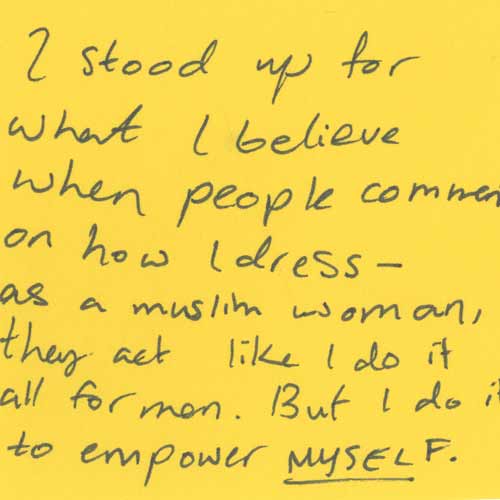 I stood up for
what I believe
when people commen
on how I dress —
as a muslim woman,
they act like I do it
all for men. But I do i
to empower MYSELF.